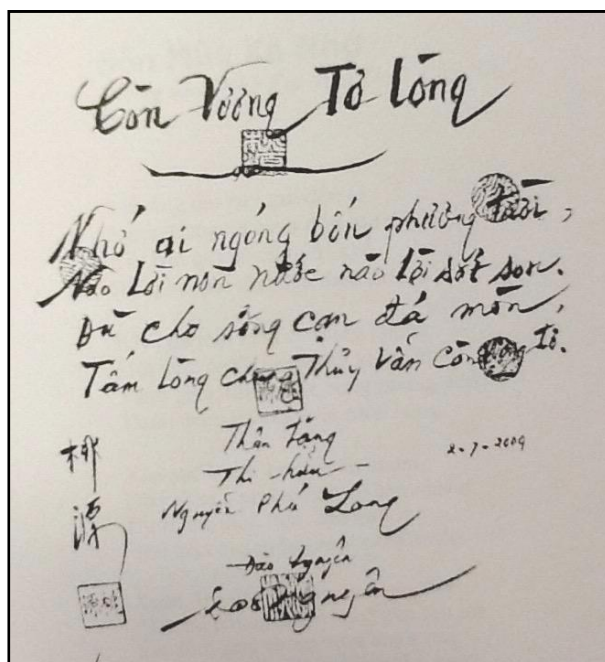 Còn Vương Tơ Lòng
Nhớ ai ngóng bốn phương trời,
Nào lời non nước nào lời sắt son.
Dù cho sông cạn đá mòn,
Tấm lòng chung Thủy vẫn còn vương tơ.
Thân tặng
Thi hữu
Nguyễn Phú Long
2-7-2009
Đào Nguyên
桃
源